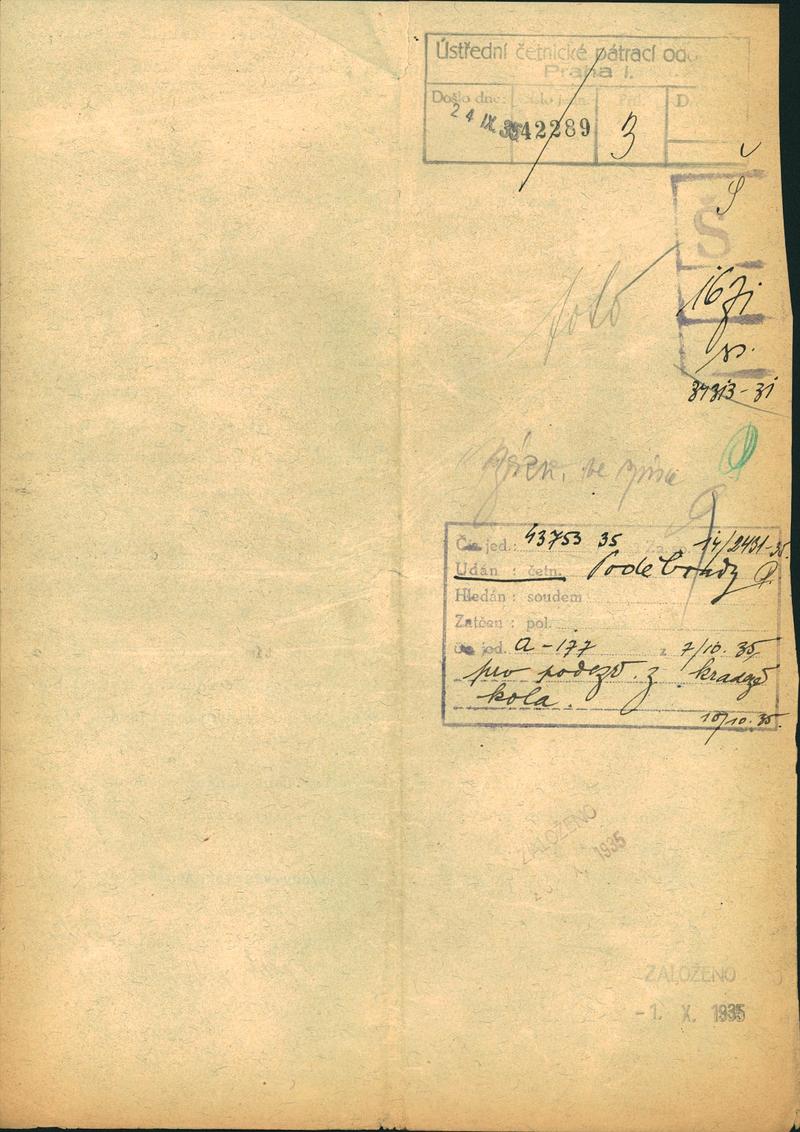 Ústřední četnické pátrací odd
Praha I.
Došlo dne: Číslo jedn. Příl. D.
24 IX. 35 42289 3
Š
167i
37313-31
foto
43753 35 Za 14/2431-35
Udán : četn. Poděbrady
Hledán : soudem
Zatčen : pol.
čís. jed. a-177 z 7/10. 35
pro podezř. z krádeže
kola.
10/10. 35.
ZALOŽENO
1935
ZALOŽENO
-1. X. 1935